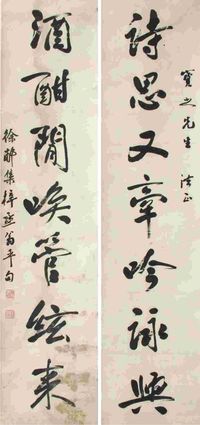 寶之先生 法正
詩思又牽吟詠興
酒酣閒喚管絃來
徐郙集翁句